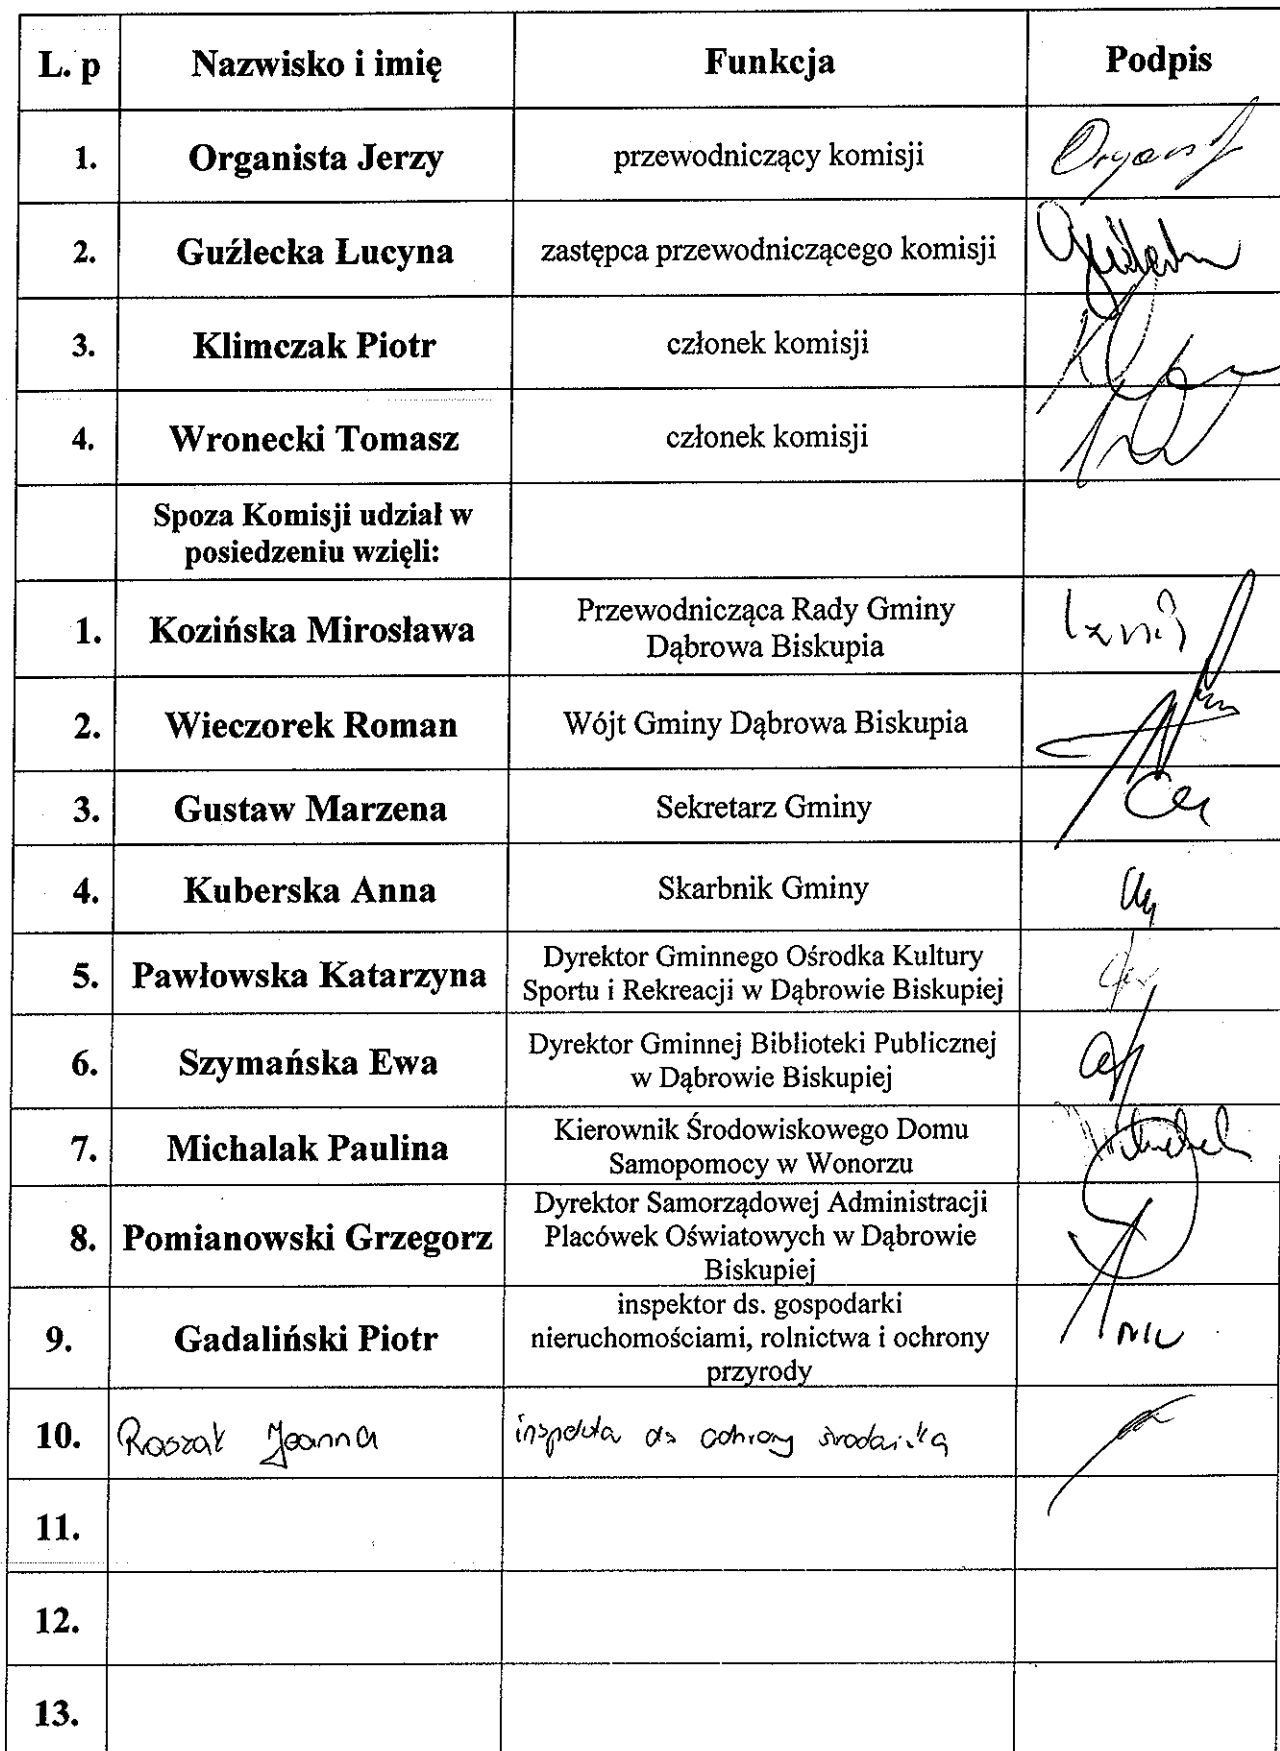 L. p Nazwisko i imię Funkcja Podpis
1. Organista Jerzy przewodniczący komisji
2. Guźlecka Lucyna zastępca przewodniczącego komisji
3. Klimczak Piotr członek komisji
4. Wronecki Tomasz członek komisji
Spoza Komisji udział w
posiedzeniu wzięli:
1. Kozińska Mirosława Przewodnicząca Rady Gminy
Dąbrowa Biskupia
2. Wieczorek Roman Wójt Gminy Dąbrowa Biskupia
3. Gustaw Marzena Sekretarz Gminy
4. Kuberska Anna Skarbnik Gminy
5. Pawłowska Katarzyna Dyrektor Gminnego Ośrodka Kultury
Sportu i Rekreacji w Dąbrowie Biskupiej
6. Szymańska Ewa Dyrektor Gminnej Biblioteki Publicznej
w Dąbrowie Biskupiej
7. Michalak Paulina Kierownik Środowiskowego Domu
Samopomocy w Wonorzu
8. Pomianowski Grzegorz Dyrektor Samorządowej Administracji
Placówek Oświatowych w Dąbrowie
Biskupiej
9. Gadaliński Piotr inspektor ds. gospodarki
nieruchomościami, rolnictwa i ochrony
przyrody
10. Joanna ds ochrony
11.
12.
13.